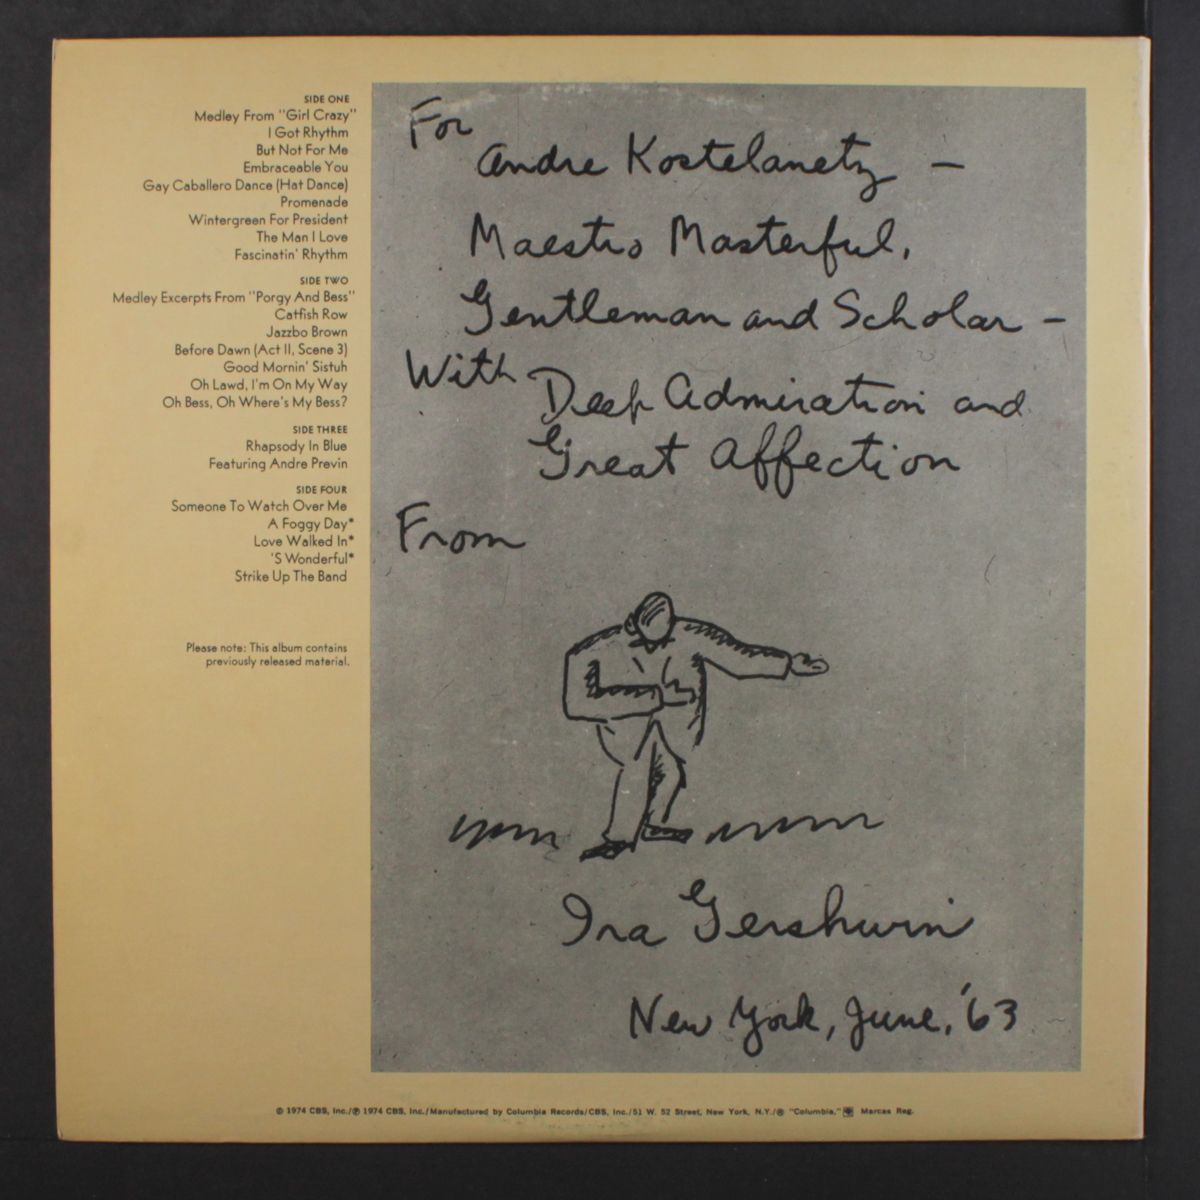 SIDE ONE
Medley From "Girl Crazy"
I Got Rhythm
But Not For Me
Embraceable You
Gay Caballero Dance (Hat Dance)
Promenade
Wintergreen For President
The Man I Love
Fascinatin' Rhythm
SIDE TWO
Medley Excerpts From "Porgy And Bess"
Catfish Row
Jazzbo Brown
Before Dawn (Act II, Scene 3)
Good Mornin' Sistuh
Oh Lawd, I'm On My Way
Oh Bess, Oh Where's My Bess?
SIDE THREE
Rhapsody In Blue
Featuring Andre Previn
SIDE FOUR
Someone To Watch Over Me
A Foggy Day*
Love Walked In*
'S Wonderful*
Strike Up The Band
Please note: This album contains
previously released material.
For
Andre Kostelanetz —
Maestro Masterful,
Gentleman and Scholar —
With Deep Admiration and
Great Affection
From
Ira Gershwin
New York, June, '63
© 1974 CBS, Inc./℗ 1974 CBS, Inc./Manufactured by Columbia Records/CBS, Inc./51 W. 52 Street, New York, N.Y./® "Columbia," Marcas Reg.